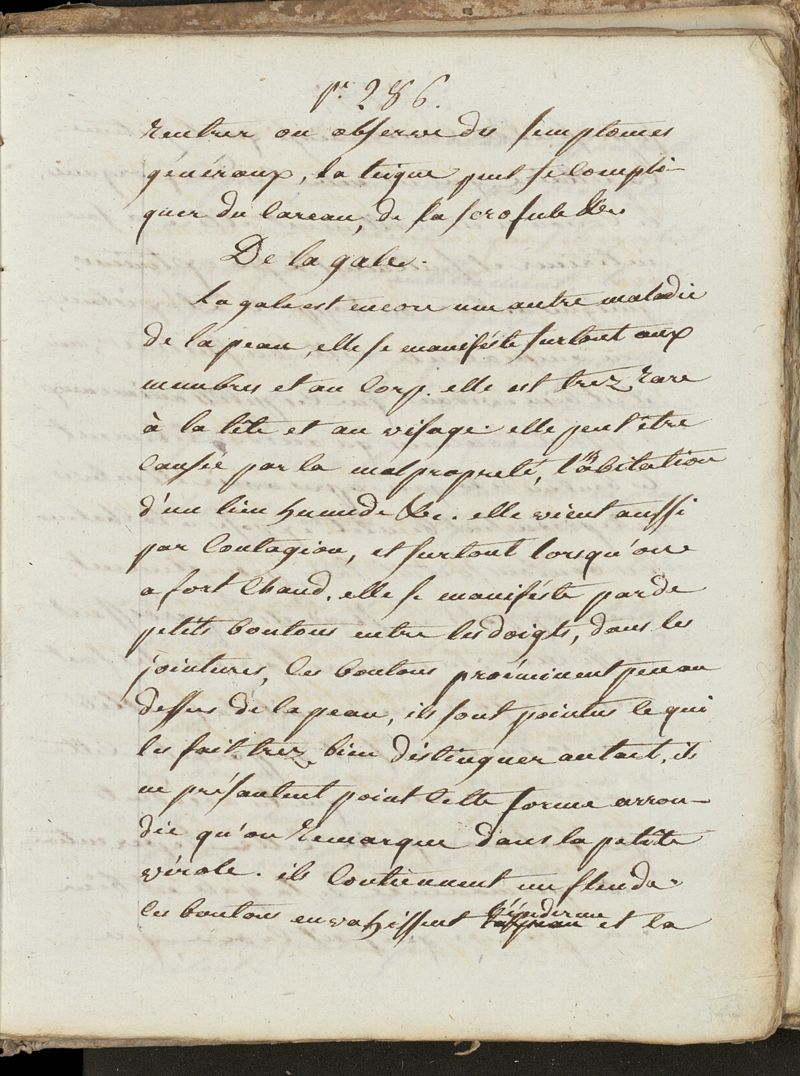 pe. 286.
rentrer on observe des simptomes
généraux, la teigne peut se compli-
quer du careau, de la scrofule &c
De la gale.
La gale est encore une autre maladie
de la peau, elle se manifeste surtout aux
membres et au corp. elle est trez rare
à la tête et au visage. elle peut être
causée par la malpropreté, l'habitation
d'un lieu humide &c. elle vient aussi
par contagion, et surtout lorsqu'on
a fort chaud. elle se manifeste par de
petits boutons entre les doigts, dans les
jointures, les boutons proéminent peu au
dessus de la peau, ils sont pointus ce qui
les fait trez bien distinguer au tact, ils
ne présentent point cette forme arron-
die qu'on remarque dans la petite
vérole. ils contiennent un fluide.
les boutons envahissent l'épiderme et la